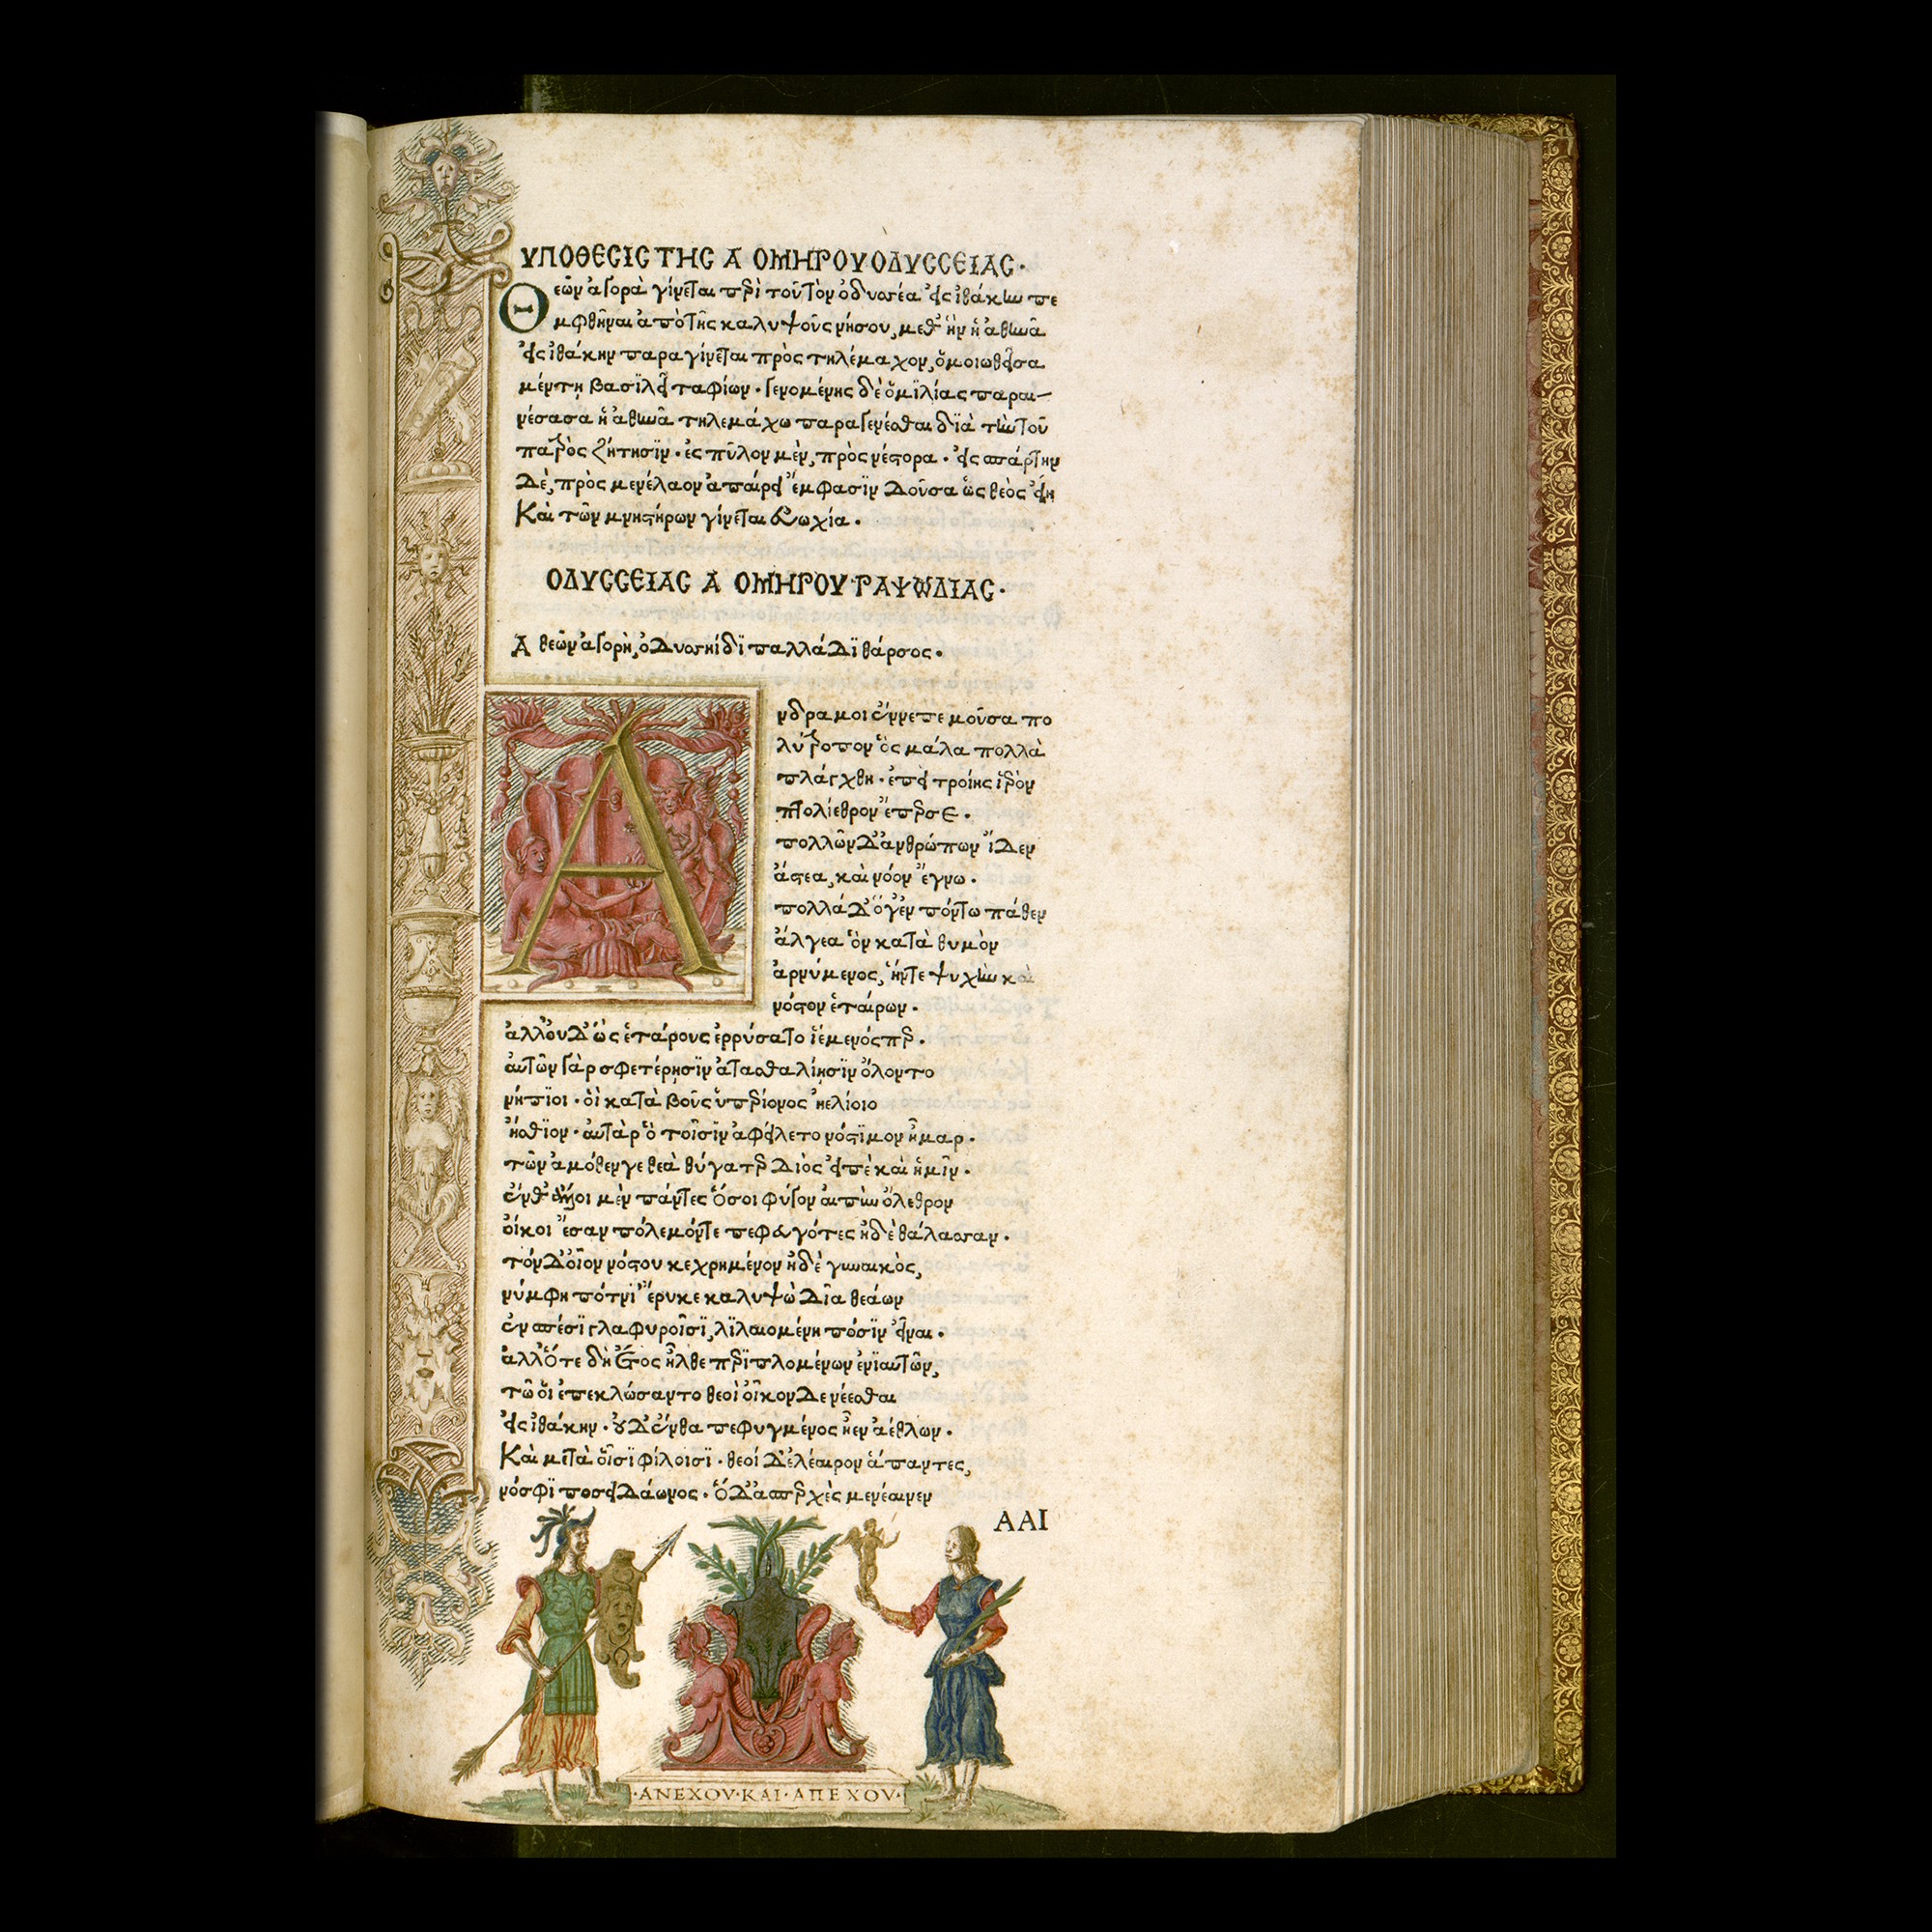 ΥΠΟΘΕCΙC ΤΗC Α ΟΜΗΡΟΥ ΟΔΥCCΕΙΑC·
Θεῶν ἀγορὰ γίνεται περὶ τοῦ τὸν ὀδυσσέα εἰς ἰθάκην πε
μφθῆναι ἀπὸ τῆς καλυψοῦς νήσου, μεθ᾽ ἣν ἡ ἀθηνᾶ
εἰς ἰθάκην παραγίνεται πρὸς τηλέμαχον, ὁμοιωθεῖσα
μέντῃ βασϊλεῖ ταφίων· γενομένης δὲ ὁμϊλίας παραι-
νέσασα ἡ ἀθηνᾶ τηλεμάχω παραγενέσθαι δϊὰ τὴν τοῦ
πατρὸς ζήτησϊν· ἐς πῦλον μὲν, πρὸς νέστορα· εἰς σπάρτην
Δὲ, πρὸς μενέλαον ἀπαίρει ἔμφασϊν Δοῦσα ὡς θεὸς εἴη
Καὶ τῶν μνηστήρων γίνεται εὐωχία·
ΟΔΥCCΕΙΑC Α ΟΜΗΡΟΥ ΡΑΨΩΔΙΑC·
Α θεῶν ἀγορὴ, ὀΔυσσηίδϊ παλλάΔϊ θάρσος·
Ανδρα μοι ἔννεπε μοῦσα πο
λύτροπον ὃς μάλα πολλὰ
πλάγχθη· ἐπεὶ τροίης ἱερὸν
πτολίεθρον ἔπερσε·
πολλῶν Δ᾽ ἀνθρώπων ἴΔεν
ἄστεα, καὶ νόον ἔγνω·
πολλά Δ᾽ ὅγ᾽ ἐν πόντω πάθεν
ἄλγεα ὃν κατὰ θυμὸν
ἀρνύμενος, ἥντε ψυχὴν καὶ
νόστον ἑταίρων·
ἀλλ᾽ οὐΔ᾽ ὣς ἑτάρους ἐρρύσατο ἱέμενός περ·
αὐτῶν γὰρ σφετέρῃσϊν ἀτασθαλίῃσϊν ὄλοντο
νήπϊοι· οἳ κατὰ βοῦς ὑπερίονος ἠελίοιο
ἤσθϊον· αὐτὰρ ὃ τοῖσϊν ἀφείλετο νόστϊμον ἦμαρ·
τῶν ἀμόθεν γε θεὰ θύγατερ Διὸς εἰπὲ καὶ ἡμῖν·
ἔνθ᾽ ἄλλοι μὲν πάντες ὅσοι φύγον αἰπὺν ὄλεθρον
οἴκοι ἔσαν πόλεμόντε πεφευγότες ἠδὲ θάλασσαν·
τόνΔ᾽ οἶον νόστου κεχρημένον ἠδὲ γυναικὸς,
νύμφη πότνϊ᾽ ἔρυκε καλυψὼ Δῖα θεάων
ἐν σπέσϊ γλαφυροῖσϊ, λϊλαιομένη πόσϊν εἶναι·
ἀλλ᾽ ὅτε δὴ ἔτος ἦλθε περϊπλομένων ἐνϊαυτῶν,
τῶ οἱ ἐπεκλώσαντο θεοὶ οἶκον Δε νέεσθαι
εἰς ἰθάκην· οὐΔ᾽ ἔνθα πεφυγμένος ἦεν ἀέθλων·
Καὶ μετὰ οἷσϊ φίλοισϊ· θεοί Δ᾽ ἐλέαιρον ἅπαντες,
νόσφϊ ποσειΔάωνος· ὃ Δ᾽ ἀσπερχὲς μενέαινεν
ΑΑΙ
·ΑΝΕΧΟΥ·ΚΑΙ·ΑΠΕΧΟΥ·